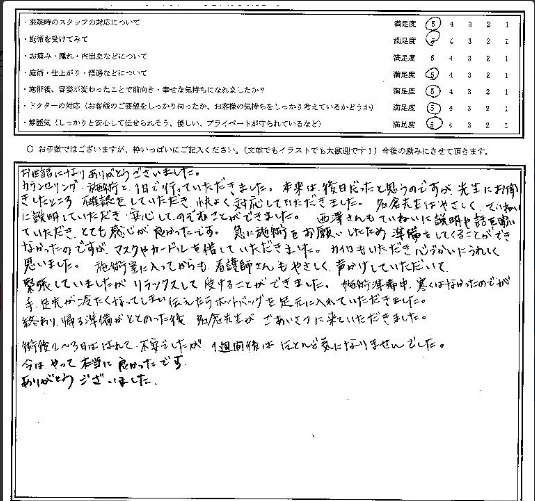 ・来院時のスタッフの対応について 満足度 5 4 3 2 1
・施術を受けてみて 満足度 5 4 3 2 1
・お痛み・腫れ・内出血などについて 満足度 5 4 3 2 1
・施術・仕上がり・経過などについて 満足度 5 4 3 2 1
・施術後、容姿が変わったことで前向き・幸せな気持ちになれましたか? 満足度 5 4 3 2 1
・ドクターの対応(お客様のご要望をしっかり伺ったか、お客様の気持ちをしっかり考えているかどうか) 満足度 5 4 3 2 1
・雰囲気(しっかりと安心して任せられそう、優しい、プライベートが守られているなど) 満足度 5 4 3 2 1
○ お手数ではございますが、枠いっぱいにご記入ください。(文章でもイラストでも大歓迎です!)今後の励みにさせて頂きます。
お世話になりありがとうございました。
カウンセリング、施術と、1日で行っていただきました。本来は、後日だったと思うのですが、先生にお聞
きしたところ 確認をしていただき 快よく対応していただきました。 先生はやさしく、ていねい
に説明していただき、安心してのぞむことができました。 西澤さんもていねいに説明や話を聞い
ていただき、とても感じが良かったです。 急に施術をお願いしたため 準備をしてくることができ
なかったのですが、マスクやカードルを借していただきました。カイロもいただき うれしく
思いました。 施術室に入ってからも 看護師さんもやさしく、声かけしていただいて、
緊張していましたが リラックスして受けることができました。 施術準備中、寒くはなかったのですが
手、足先が冷たくなってしまい 伝えたらホットパックを足元に入れていただきました。
終わり、帰る準備がととのった後、 先生が ごあいさつに来ていただきました。
術後2〜3日ははれて、不安でしたが、1週間後は ほとんど気になりませんでした。
今は やって 本当に 良かったです。
ありがとう ございました。